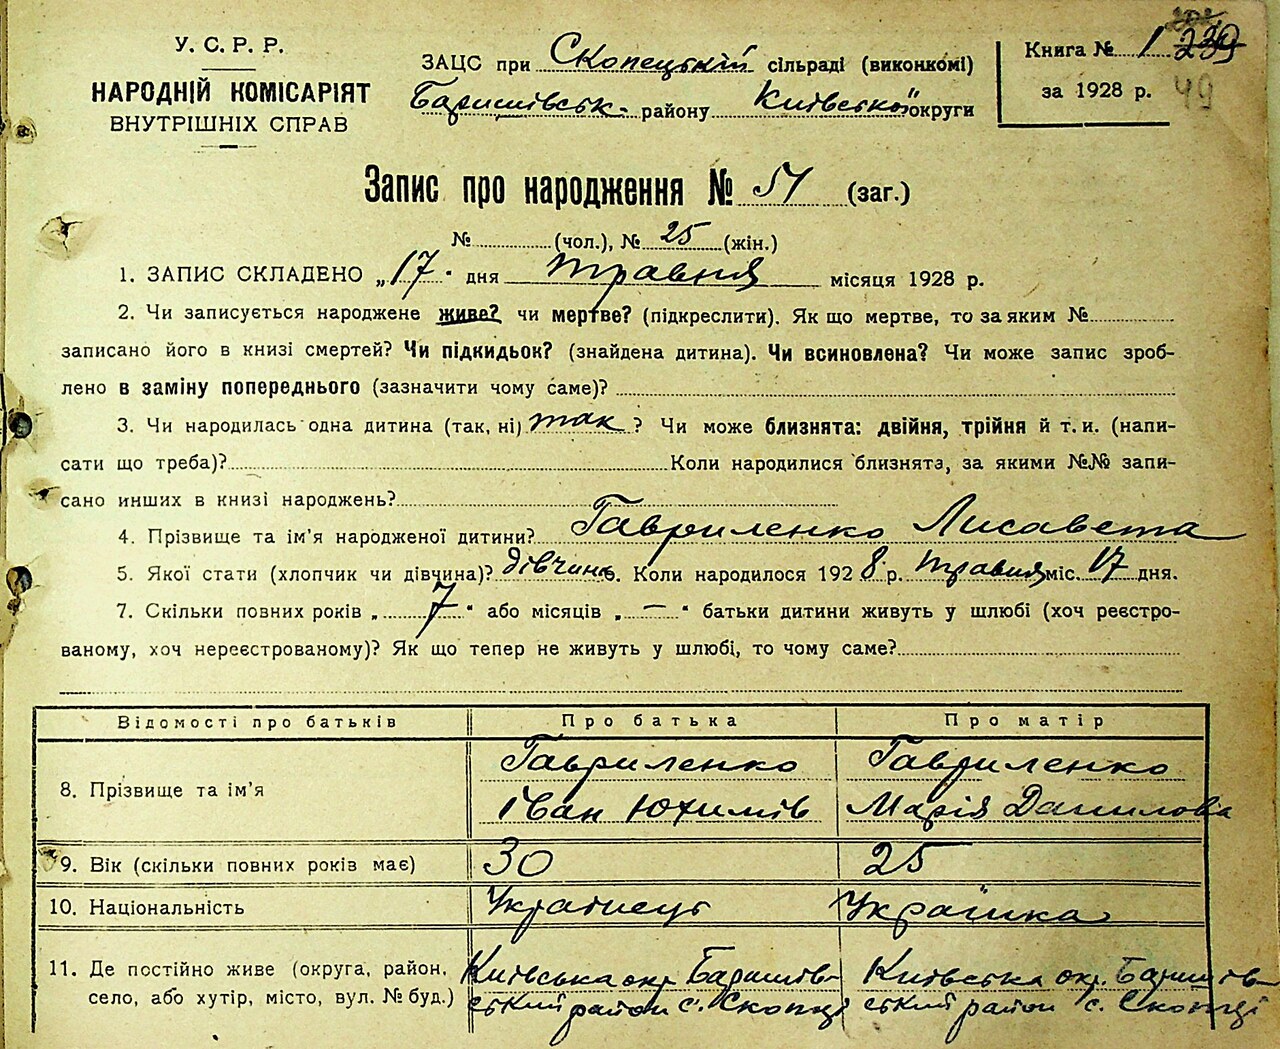 У. С. Р. Р.
НАРОДНІЙ КОМІСАРІЯТ
ВНУТРІШНІХ СПРАВ
ЗАЦС при Скопецькій сільраді (виконкомі)
Баришівськ. району Київської округи
Книга № 1 239
за 1928 р. 49
Запис про народження № 51 (заг.)
№ (чол.), № 25 (жін.)
1. ЗАПИС СКЛАДЕНО „17" дня травня місяця 1928 р.
2. Чи записується народжене живе? чи мертве? (підкреслити). Як що мертве, то за яким №
записано його в книзі смертей? Чи підкидьок? (знайдена дитина). Чи всиновлена? Чи може запис зроб-
лено в заміну попереднього (зазначити чому саме)?
3. Чи народилась одна дитина (так, ні) так ? Чи може близнята: двійня, трійня й т. и. (напи-
сати що треба)? Коли народилися близнята, за якими №№ запи-
сано инших в книзі народжень?
4. Прізвище та ім'я народженої дитини? Гавриленко Лисавета
5. Якої стати (хлопчик чи дівчина)? дівчина. Коли народилося 1928 р. травня міс. 17 дня.
7. Скільки повних років „ 7 " або місяців „ — " батьки дитини живуть у шлюбі (хоч реєстро-
ваному, хоч нереєстрованому)? Як що тепер не живуть у шлюбі, то чому саме?
Відомості про батьків Про батька Про матір
8. Прізвище та ім'я Гавриленко Гавриленко
Іван Юхимів Марія Данилова
9. Вік (скільки повних років має) 30 25
10. Національність Українець Українка
11. Де постійно живе (округа, район, Київська окр. Баришів- Київська окр. Баришів-
село, або хутір, місто, вул. № буд.) ський район с. Скопці ський район с. Скопці